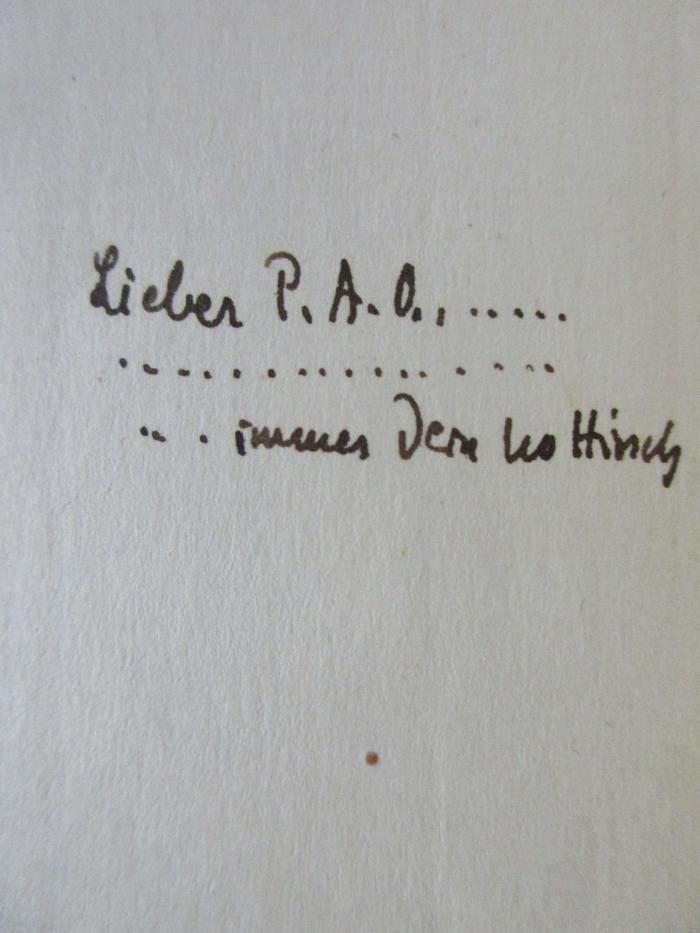 Lieber P. A. O., .....
. . . . . . . . . . . . . . . .
.. . immer Dein Leo Hirsch